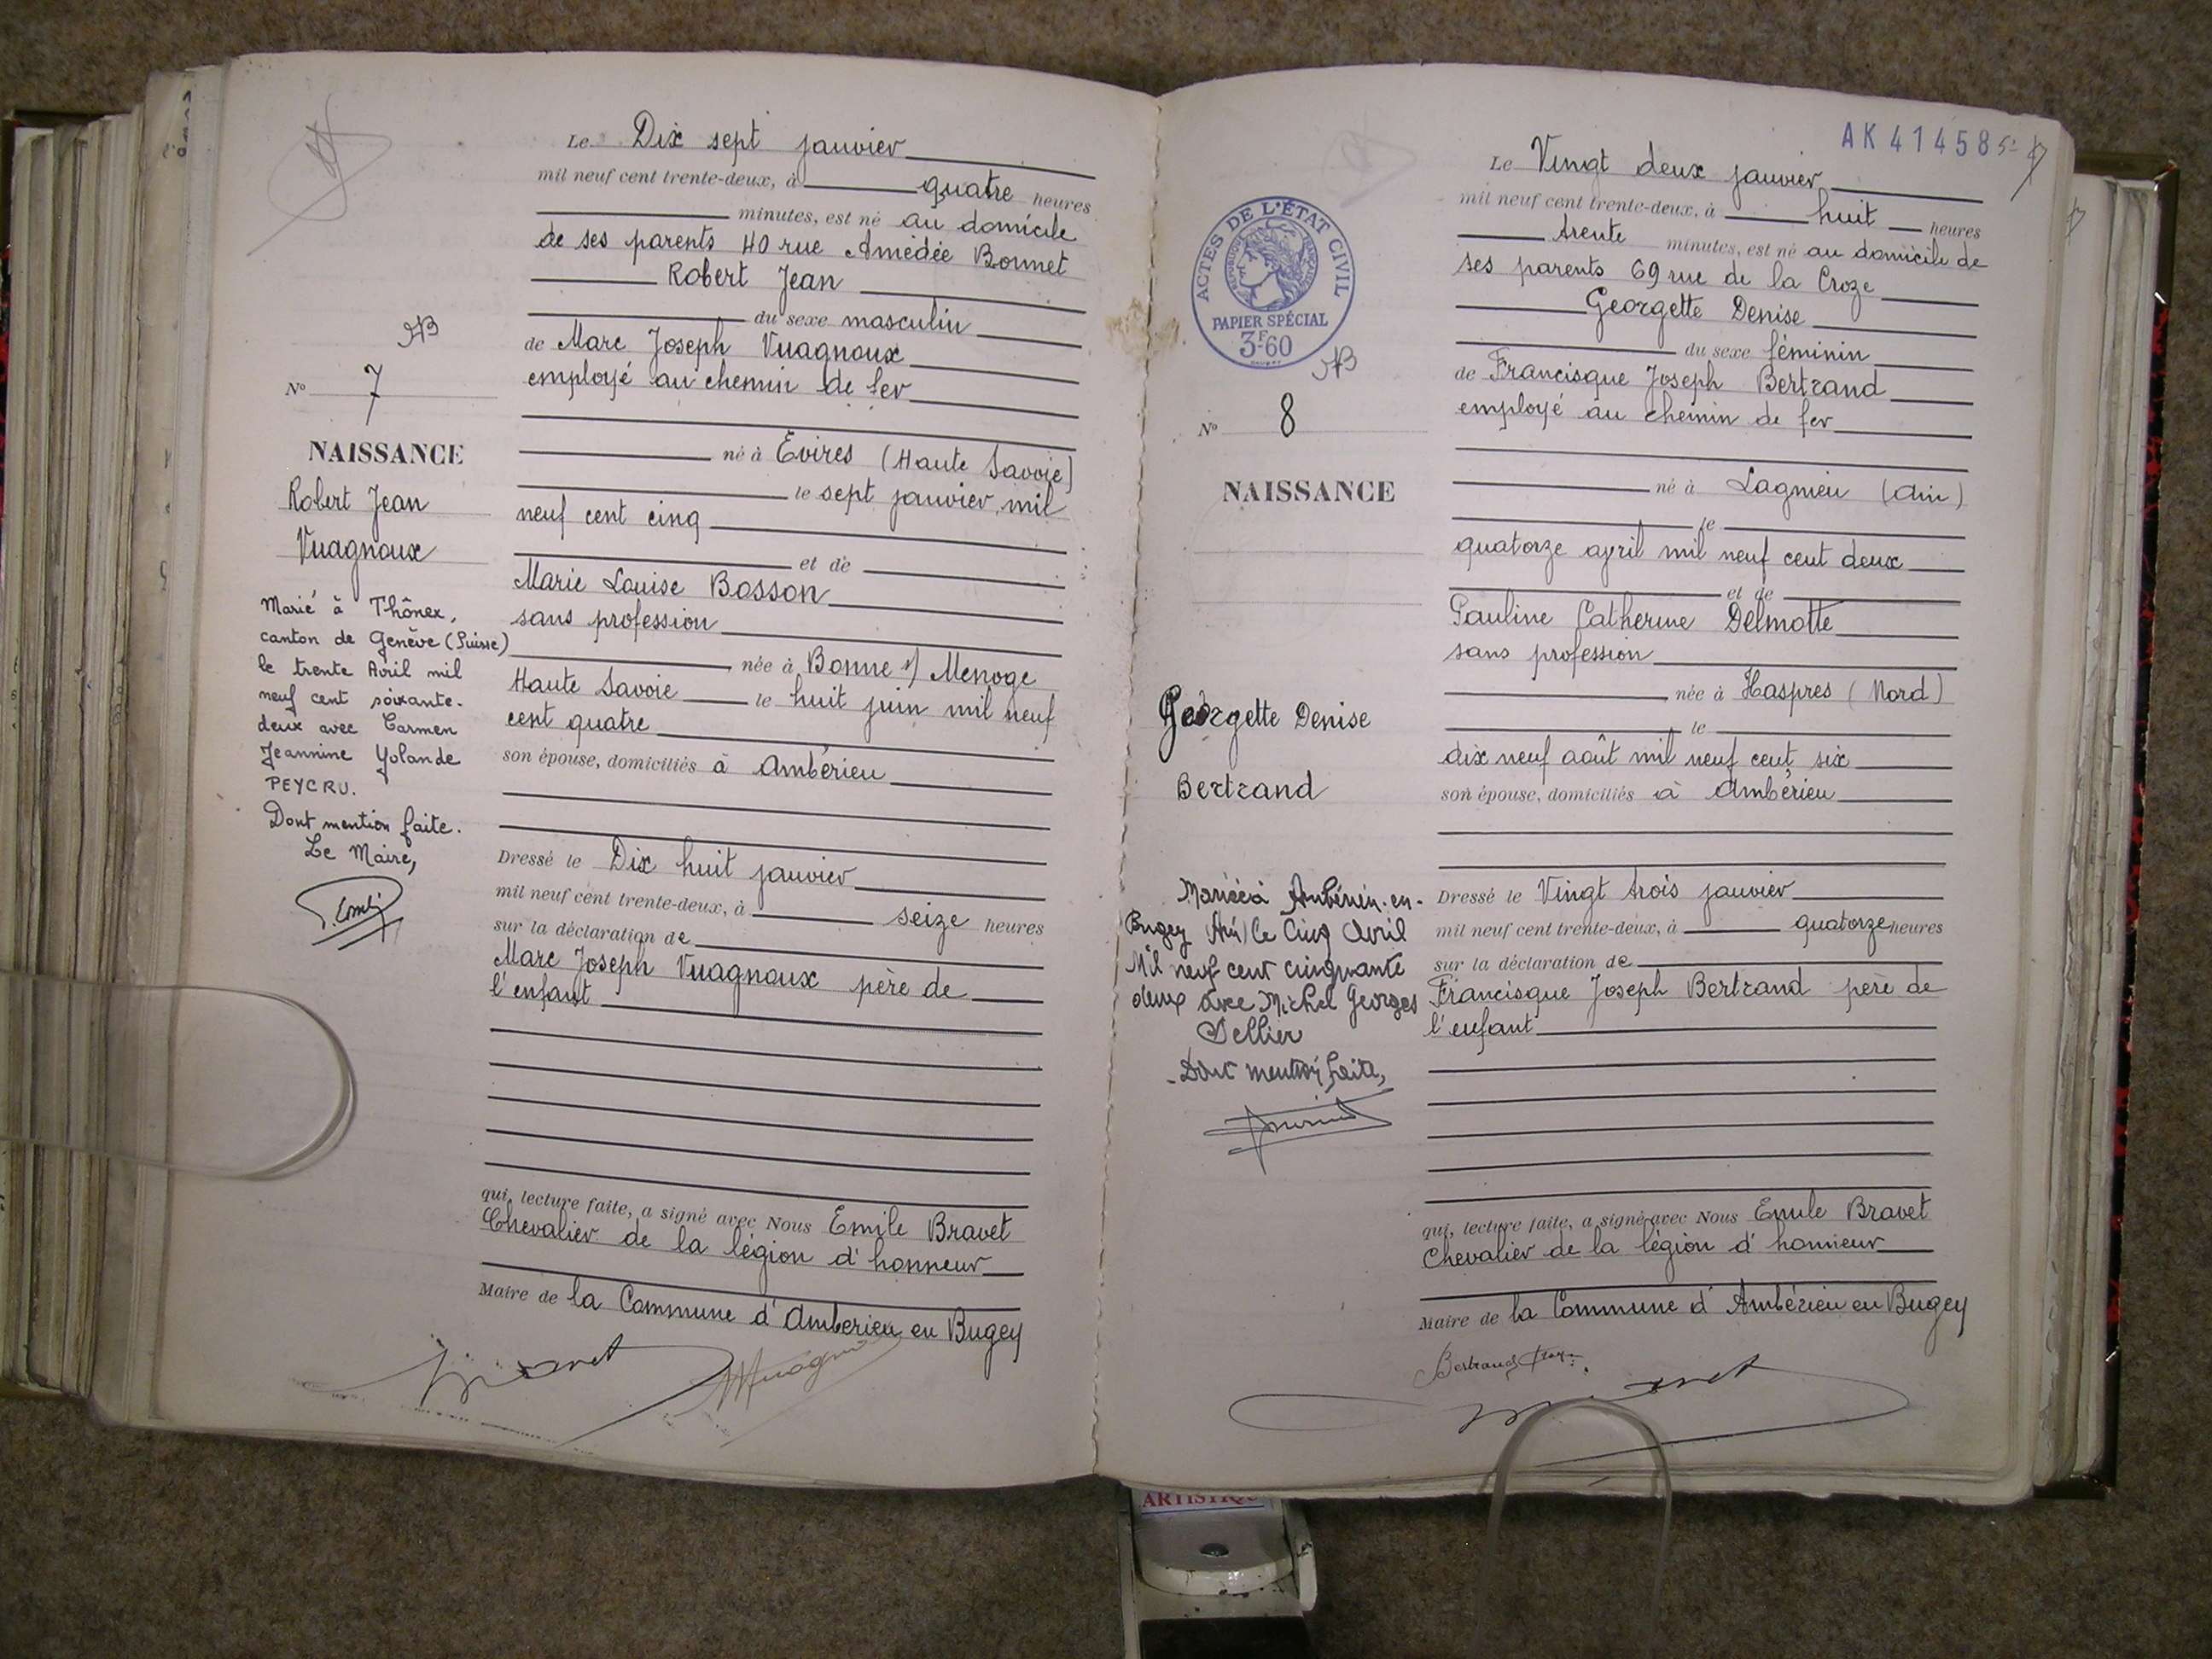 Le Dix sept janvier
mil neuf cent trente-deux, à quatre heures
minutes, est né au domicile
de ses parents 40 rue Amédée Bonnet
Robert Jean
du sexe masculin
de Marc Joseph Vuagnoux
employé au chemin de fer
né à Evires (Haute Savoie)
le sept janvier mil
neuf cent cinq
et de
Marie Louise Bosson
sans profession
née à Bonne s/ Menoge
Haute Savoie le huit juin mil neuf
cent quatre
son épouse, domiciliés à Ambérieu
Dressé le Dix huit janvier
mil neuf cent trente-deux, à seize heures
sur la déclaration de
Marc Joseph Vuagnoux père de
l'enfant
qui, lecture faite, a signé avec Nous Emile Bravet
Chevalier de la légion d'honneur
Maire de la Commune d'Amberieu en Bugey
N° 7
NAISSANCE
Robert Jean
Vuagnoux
Marié à Thônex,
canton de Genève (Suisse)
le trente Avril mil
neuf cent soixante-
deux avec Carmen
Jeannine Yolande
PEYCRU.
Dont mention faite.
Le Maire,
AK 41458
ACTES DE L'ÉTAT CIVIL
RÉPUBLIQUE FRANÇAISE
PAPIER SPÉCIAL
3F60
Le Vingt deux janvier
mil neuf cent trente-deux, à huit heures
trente minutes, est né au domicile de
ses parents 69 rue de la Croze
Georgette Denise
du sexe féminin
de Francisque Joseph Bertrand
employé au chemin de fer
né à Lagnieu (Ain)
le
quatorze avril mil neuf cent deux
et de
Pauline Catherine Delmotte
sans profession
née à Haspres (Nord)
le
dix neuf août mil neuf cent six
son épouse, domiciliés à Ambérieu
Dressé le Vingt trois janvier
mil neuf cent trente-deux, à quatorze heures
sur la déclaration de
Francisque Joseph Bertrand père de
l'enfant
qui, lecture faite, a signé avec Nous Emile Bravet
Chevalier de la légion d'honneur
Maire de la Commune d'Ambérieu en Bugey
Bertrand
N° 8
NAISSANCE
Georgette Denise
Bertrand
Mariée à Ambérieu-en-
Bugey (Ain) le Cinq Avril
Mil neuf cent cinquante
deux avec Michel Georges
Dellier
Dont mention faite,
ARTISTIQU